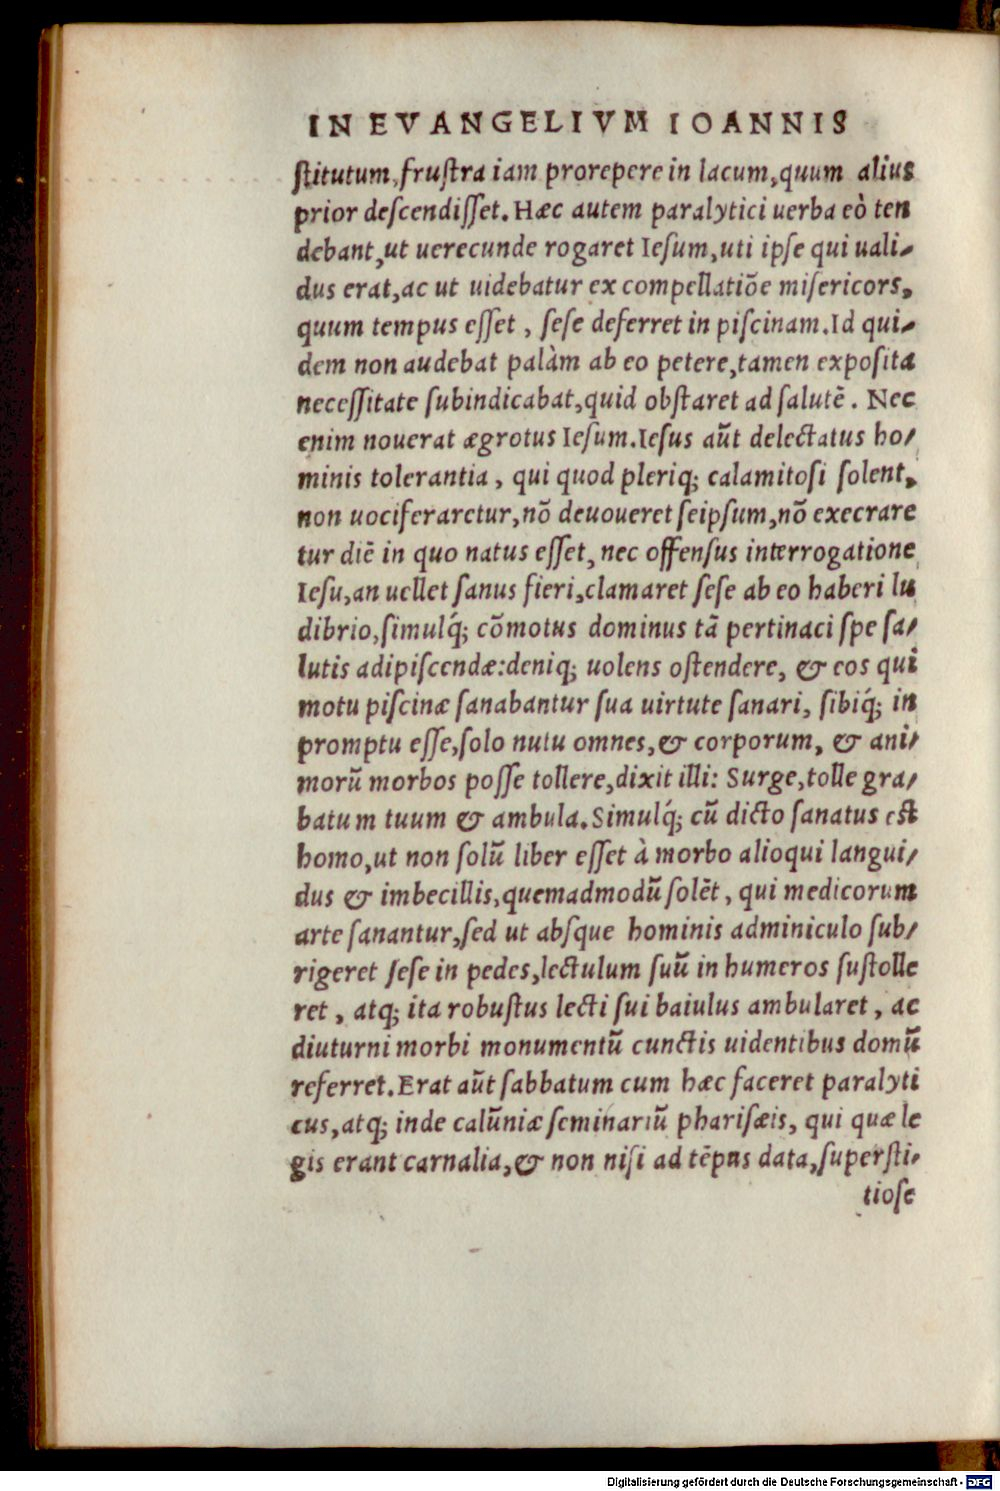 IN EVANGELIVM IOANNIS
ſtitutum, fruſtra iam prorepere in lacum, quum alius
prior deſcendiſſet. Hæc autem paralytici uerba eò ten
debant, ut uerecunde rogaret Ieſum, uti ipſe qui uali-
dus erat, ac ut uidebatur ex compellatiōe miſericors,
quum tempus eſſet, ſeſe deferret in piſcinam. Id qui-
dem non audebat palàm ab eo petere, tamen expoſita
neceſſitate ſubindicabat, quid obſtaret ad ſalutē. Nec
enim nouerat ægrotus Ieſum. Ieſus aūt delectatus ho-
minis tolerantia, qui quod pleriq; calamitoſi ſolent,
non uociferaretur, nō deuoueret ſeipſum, nō execrare
tur diē in quo natus eſſet, nec offenſus interrogatione
Ieſu, an uellet ſanus fieri, clamaret ſeſe ab eo haberi lu
dibrio, ſimulq́; cōmotus dominus tā pertinaci ſpe ſa-
lutis adipiſcendæ: deniq; uolens oſtendere, & eos qui
motu piſcinæ ſanabantur ſua uirtute ſanari, ſibiq́; in
promptu eſſe, ſolo nutu omnes, & corporum, & ani-
morū morbos poſſe tollere, dixit illi: Surge, tolle gra-
batum tuum & ambula. Simulq́; cū dicto ſanatus eſt
homo, ut non ſolū liber eſſet à morbo alioqui langui-
dus & imbecillis, quemadmodū ſolēt, qui medicorum
arte ſanantur, ſed ut abſque hominis adminiculo ſub-
rigeret ſeſe in pedes, lectulum ſuū in humeros ſuſtolle
ret, atq; ita robuſtus lecti ſui baiulus ambularet, ac
diuturni morbi monumentū cunctis uidentibus domū
referret. Erat aūt ſabbatum cum hæc faceret paralyti
cus, atq; inde calūniæ ſeminariū phariſæis, qui quæ le
gis erant carnalia, & non niſi ad tēpus data, ſuperſti-
tioſe
Digitalisierung gefördert durch die Deutsche Forschungsgemeinschaft - DFG